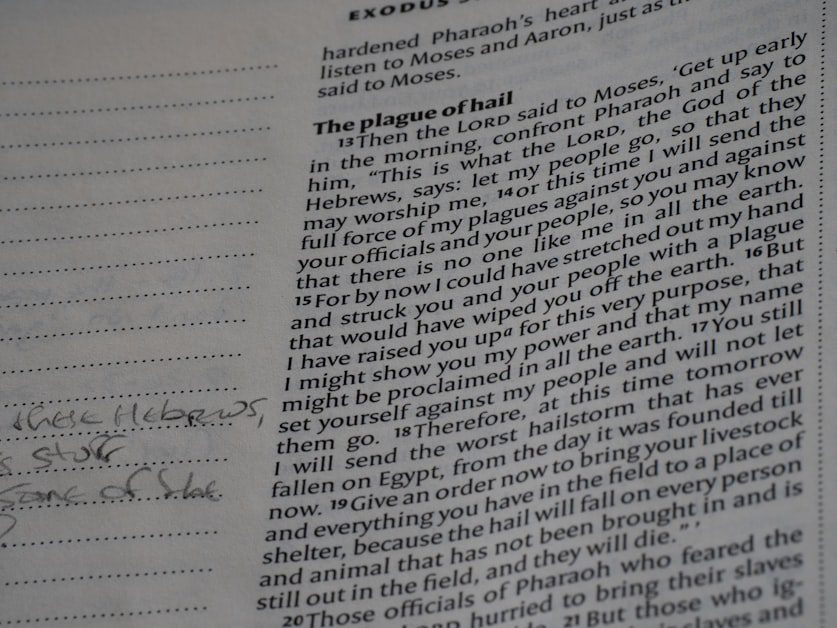 EXODUS
hardened Pharaoh's heart
listen to Moses and Aaron, just as
said to Moses.
The plague of hail
13 Then the LORD said to Moses, 'Get up early
in the morning, confront Pharaoh and say to
him, "This is what the LORD, the God of the
Hebrews, says: let my people go, so that they
may worship me, 14 or this time I will send the
full force of my plagues against you and against
your officials and your people, so you may know
that there is no one like me in all the earth.
15 For by now I could have stretched out my hand
and struck you and your people with a plague
that would have wiped you off the earth. 16 But
I have raised you up a for this very purpose, that
I might show you my power and that my name
might be proclaimed in all the earth. 17 You still
set yourself against my people and will not let
them go. 18 Therefore, at this time tomorrow
I will send the worst hailstorm that has ever
fallen on Egypt, from the day it was founded till
now. 19 Give an order now to bring your livestock
and everything you have in the field to a place of
shelter, because the hail will fall on every person
and animal that has not been brought in and is
still out in the field, and they will die." '
20 Those officials of Pharaoh who feared the
LORD hurried to bring their slaves
21 But those who ig-
slaves and
these Hebrews,
stuff
some of the